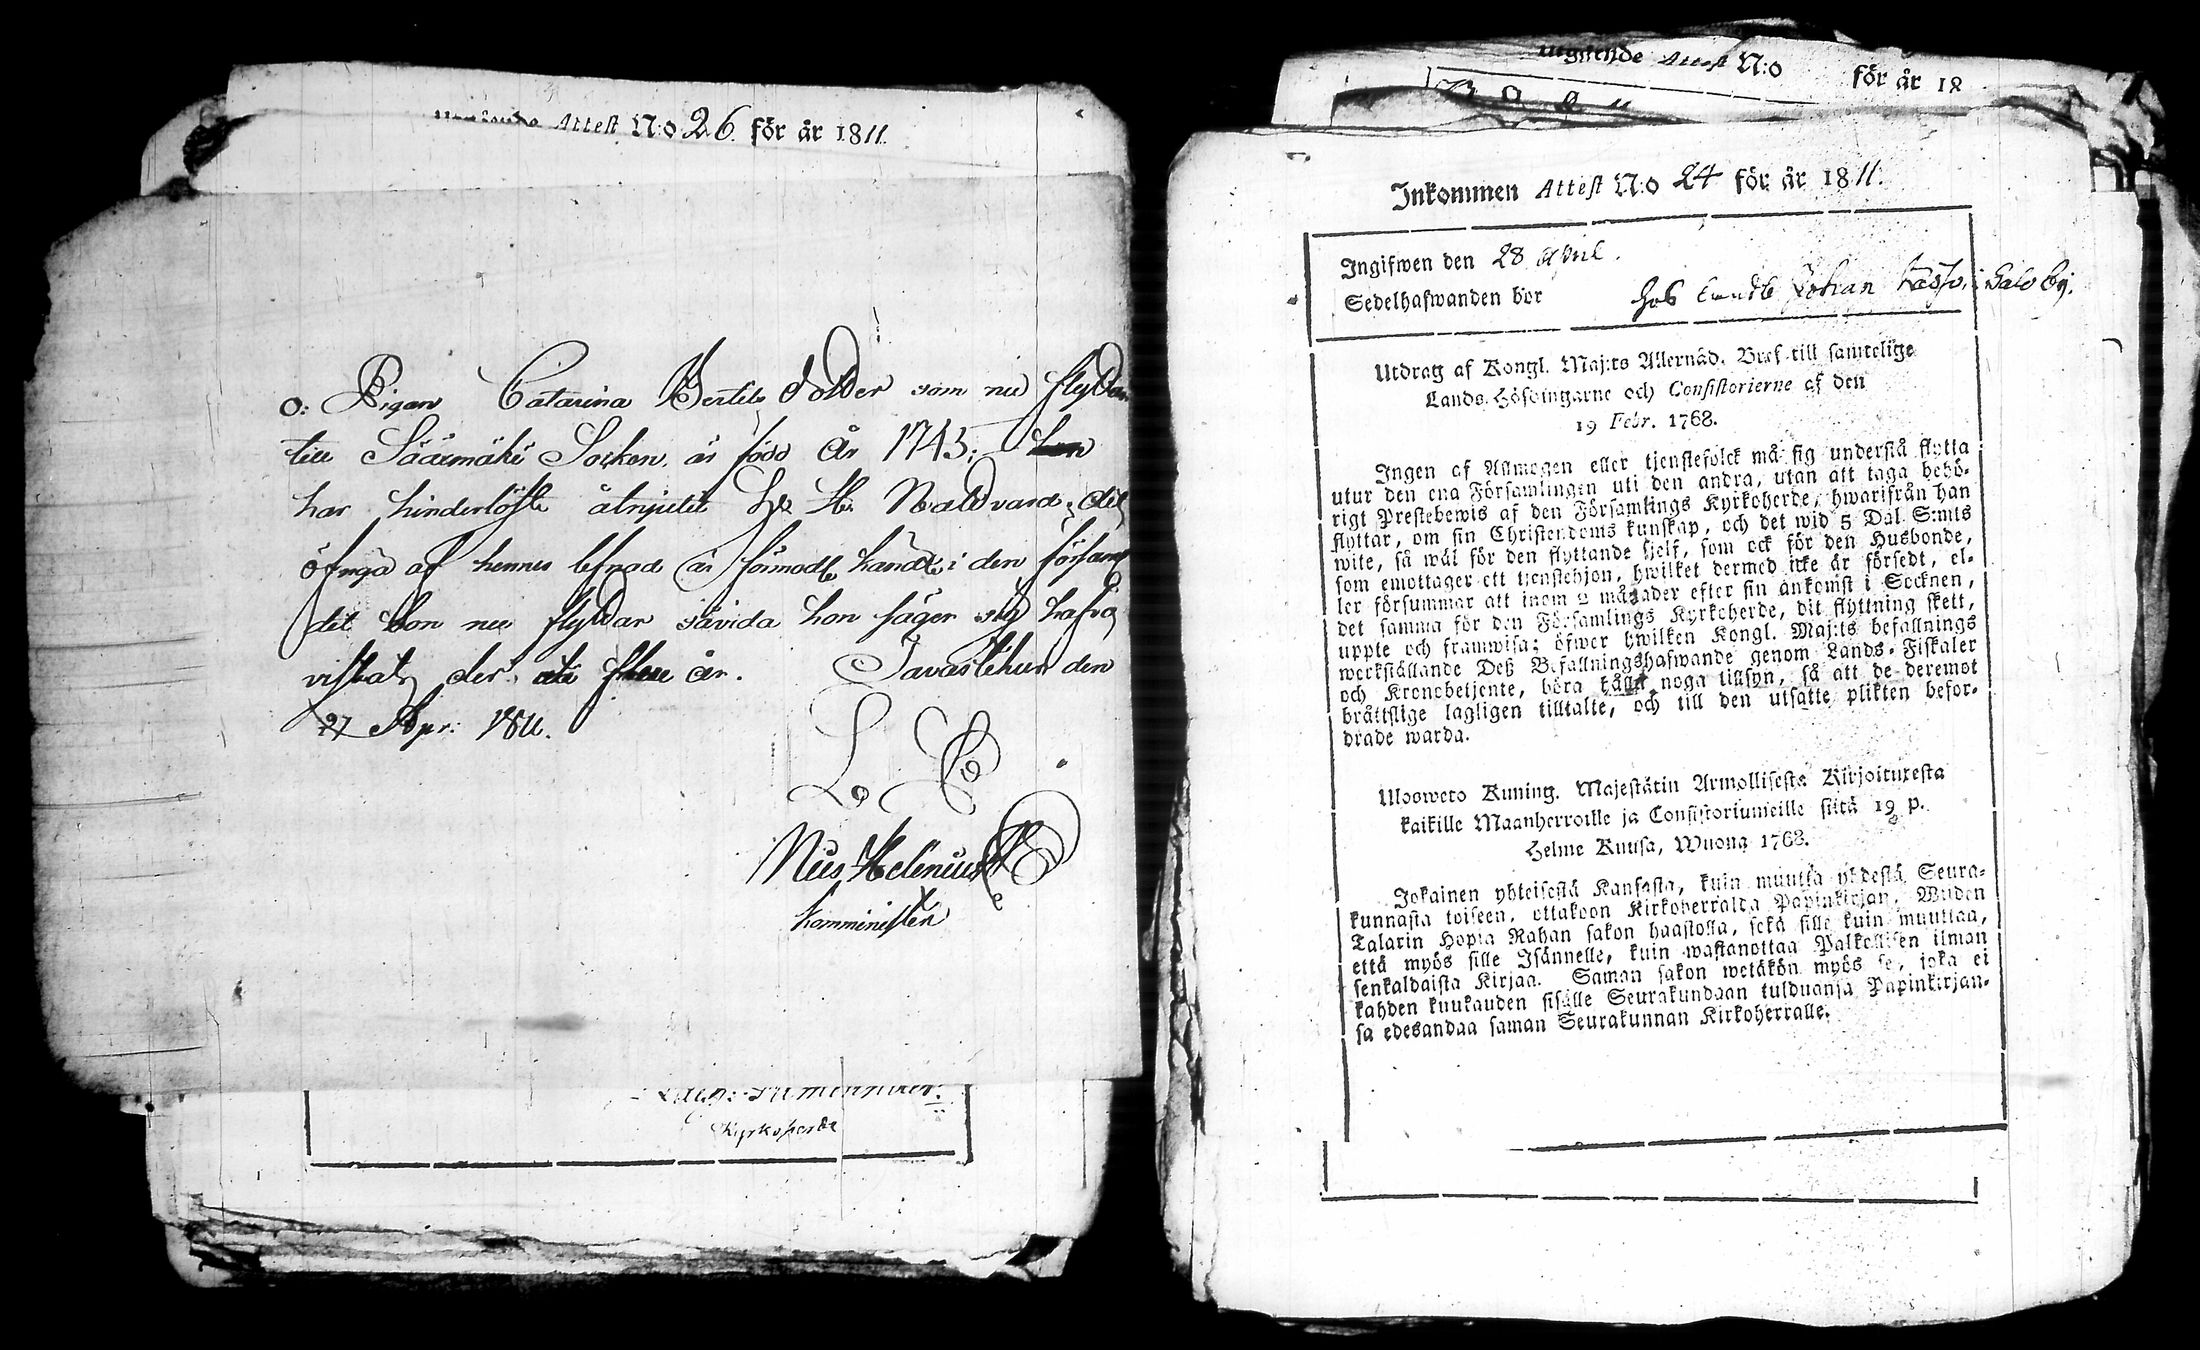 Utgående Attest N:o 26. för år 1811.
o: Pigan Catarina Bertils dotter som nu flyttar
till Sääxmäki Socken, är född År 1743;
har hinderlöst åtnjutit H. H. Nattvard; det
öfriga af hennes lefnad är förmodl. kändt i den församl.
dit hon nu flyttar såvida hon säger sig hafva
vistats der uti flere år. Tavastehus den
27 Apr: 1811.
L. S.
Nils Helenius
Komminister
Kyrkoherde
Utgående Attest N:o för år 18
Inkommen Attest N:o 24 för år 1811.
Ingifwen den 28 April.
Sedelhafwanden bor hos Johan i by.
Utdrag af Kongl. Maj:ts Allernåd. Bref till samtelige
Lands-Höfdingarne och Consistorierne af den
19 Febr. 1768.
Ingen af Allmogen eller tjenstefolck må sig understå flytta
utur den ena Församlingen uti den andra, utan att taga behö-
rigt Prestebewis af den Församlings Kyrkoherde, hwarifrån han
flyttar, om sin Christendoms kunskap, och det wid 5 Dal. S:mts
wite, så wäl för den flyttande sjelf, som ock för den Husbonde,
som emottager ett tjenstehjon, hwilket dermed icke är försedt, el-
ler försummar att inom 2 månader efter sin ankomst i Socknen,
det samma för den Församlings Kyrkoherde, dit flyttning skett,
uppte och framwisa; öfwer hwilken Kongl. Maj:ts befallnings
werkställande Deß Befallningshafwande genom Lands-Fiskaler
och Kronobetjente, böra hålla noga tillsyn, så att de deremot
bråttslige lagligen tilltalte, och till den utsatte plikten befor-
drade warda.
Ulosweto Kuning. Majestätin Armollisesta Kirjoituxesta
kaikille Maanherroille ja Consistoriumeille siitä 19 p.
Helme Kuusa, Wuona 1768.
Jokainen yhteisestä Kansasta, kuin muutta yhdestä Seura-
kunnasta toiseen, ottakoon Kirkoherralta Papinkirjan, Wiiden
Talarin Hopia Rahan sakon haastolla, sekä sille kuin muuttaa,
että myös sille Isännelle, kuin wastanottaa Palkollisen ilman
senkaldaista Kirjaa. Saman sakon wetäkön myös se, joka ei
kahden kuukauden sisälle Seurakundaan tulduansa Papinkirjan-
sa edesandaa saman Seurakunnan Kirkoherralle.